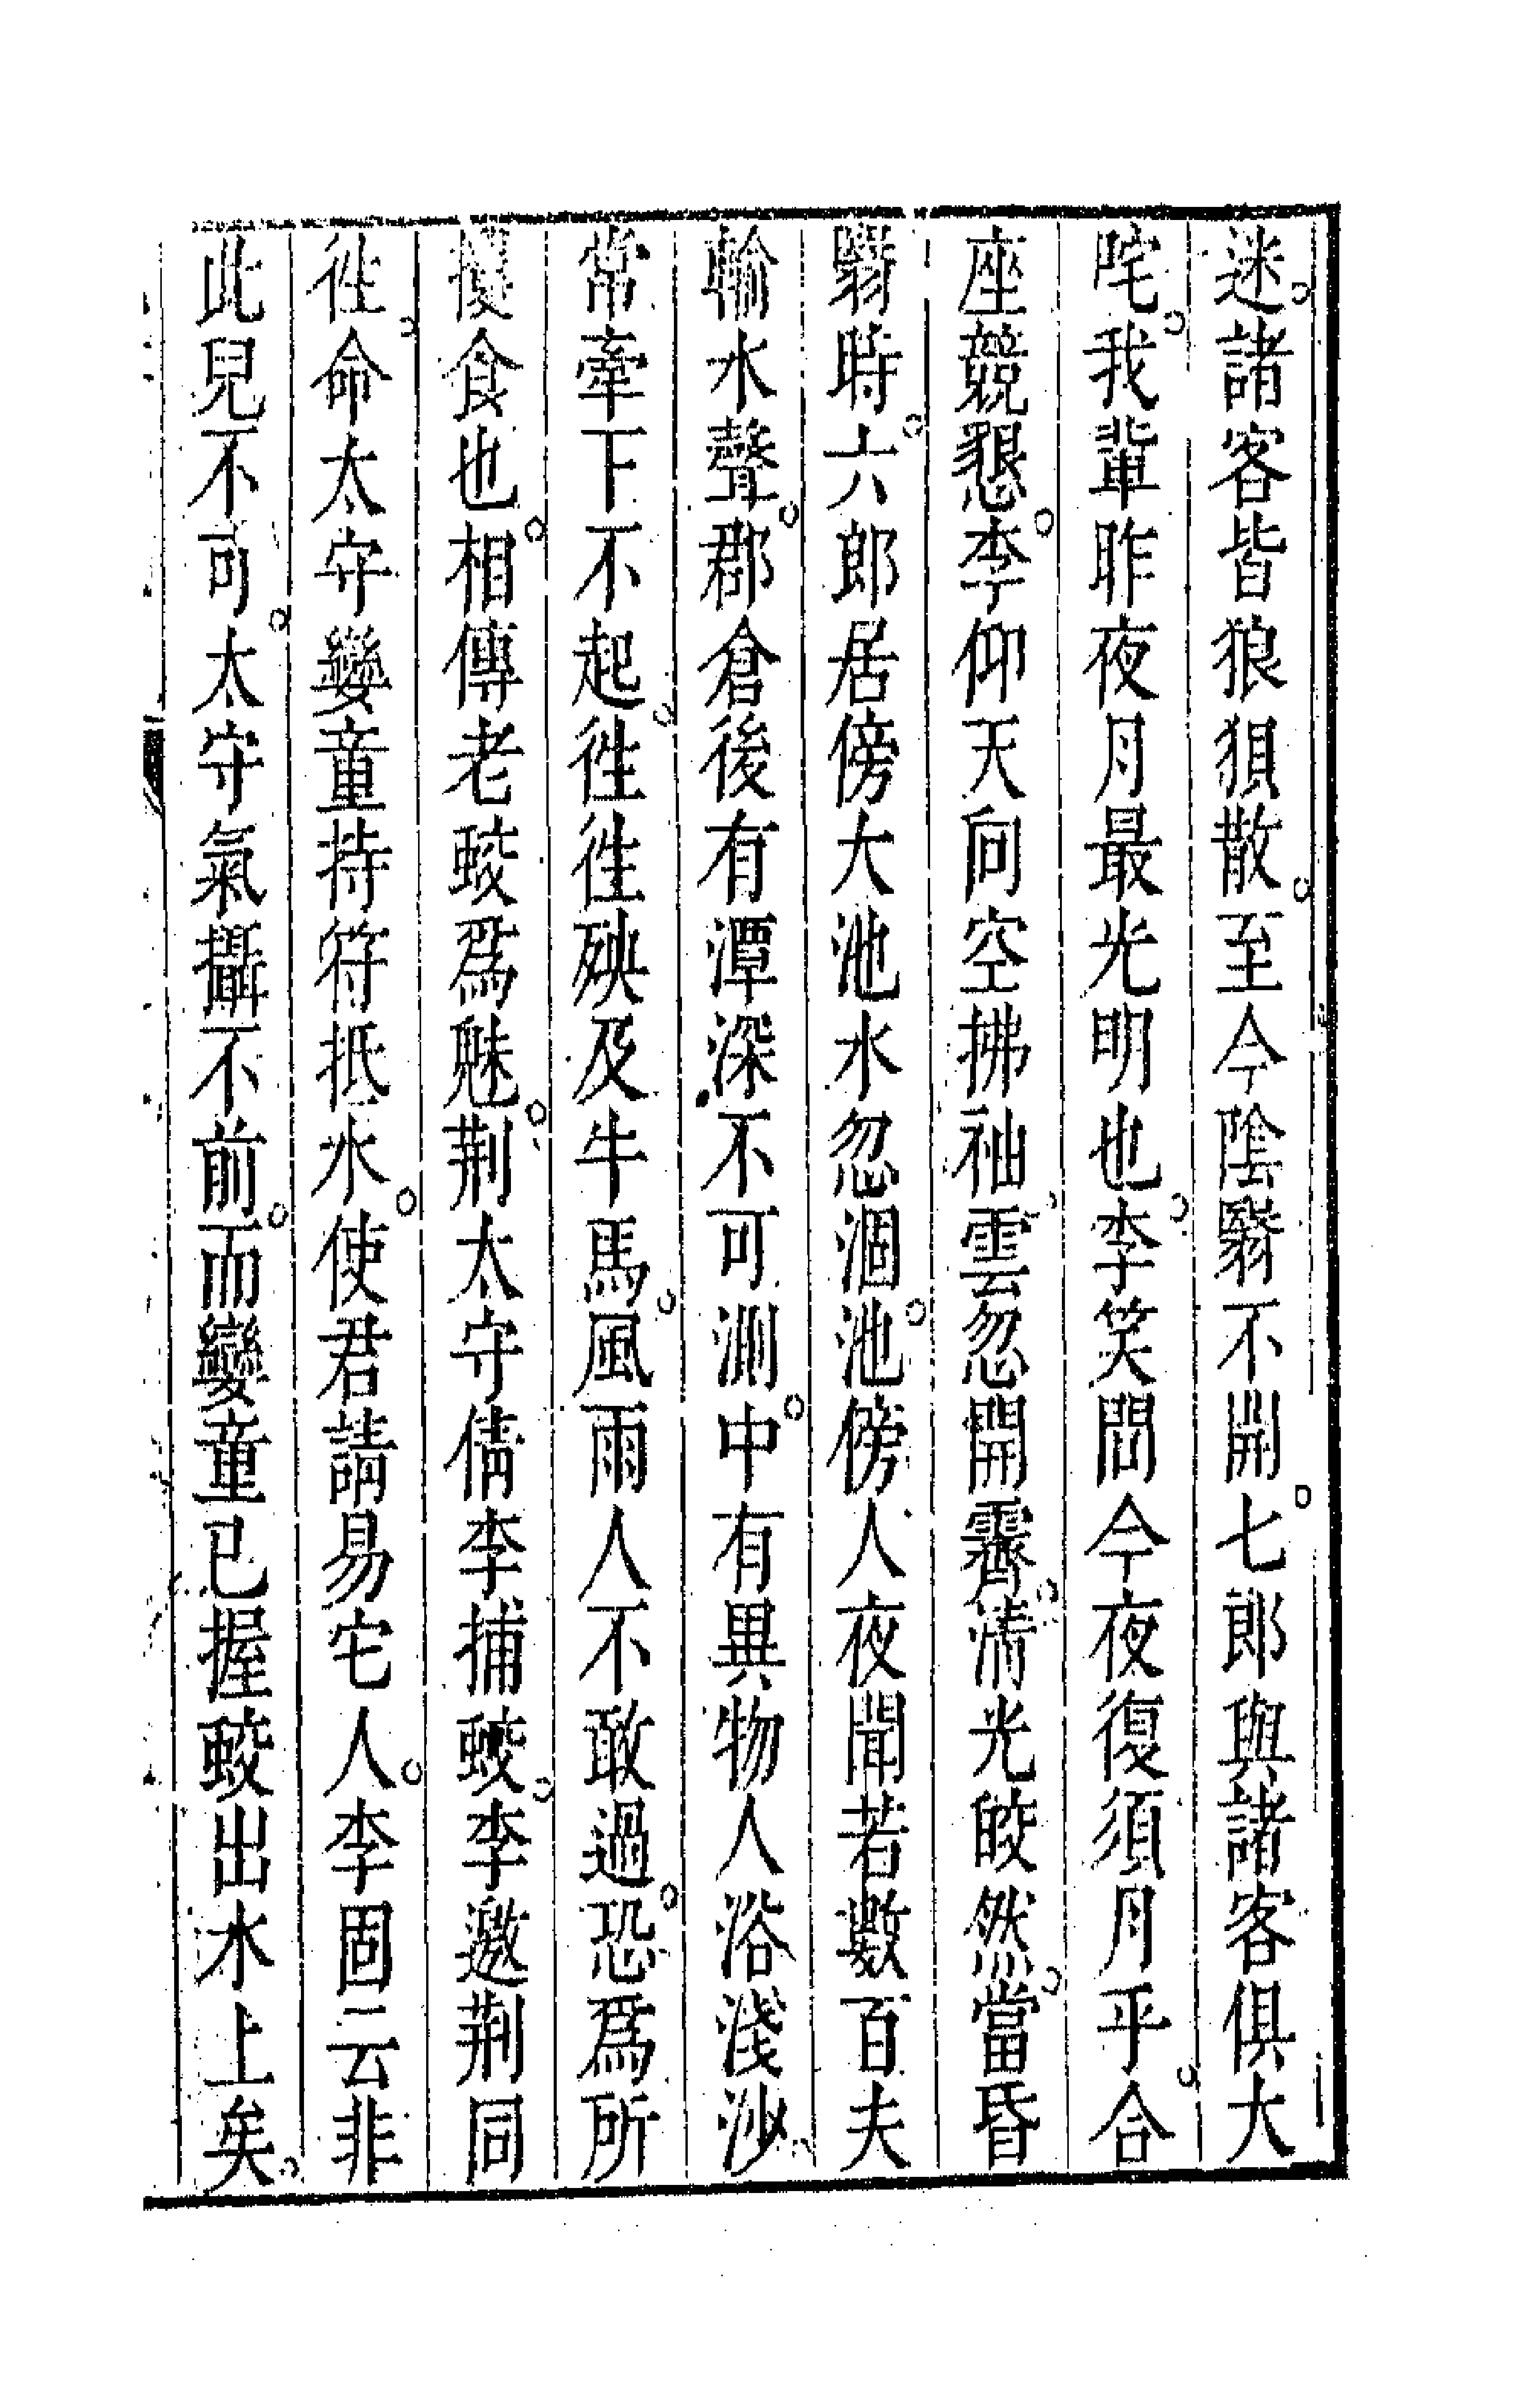 迷諸客皆狼狽散至今陰翳不開七郎與諸客俱大
咤我輩昨夜月最光明也李笑問今夜復須月乎合
座競懇李仰天向空拂袖雲忽開霽清光皎然當昏
翳時六郎居傍大池水忽涸池傍人夜聞若數百夫
輸水聲郡倉後有潭深不可測中有異物人浴淺沙
常牽下不起徃徃殃及牛馬風雨人不敢過恐爲所
攫食也相傳老蛟爲魅荆太守倩李捕蛟李邀荆同
徃命太守孌童持符抵水使君請易它人李固云非
此兒不可太守氣攝不前而孌童已握蛟出水上矣